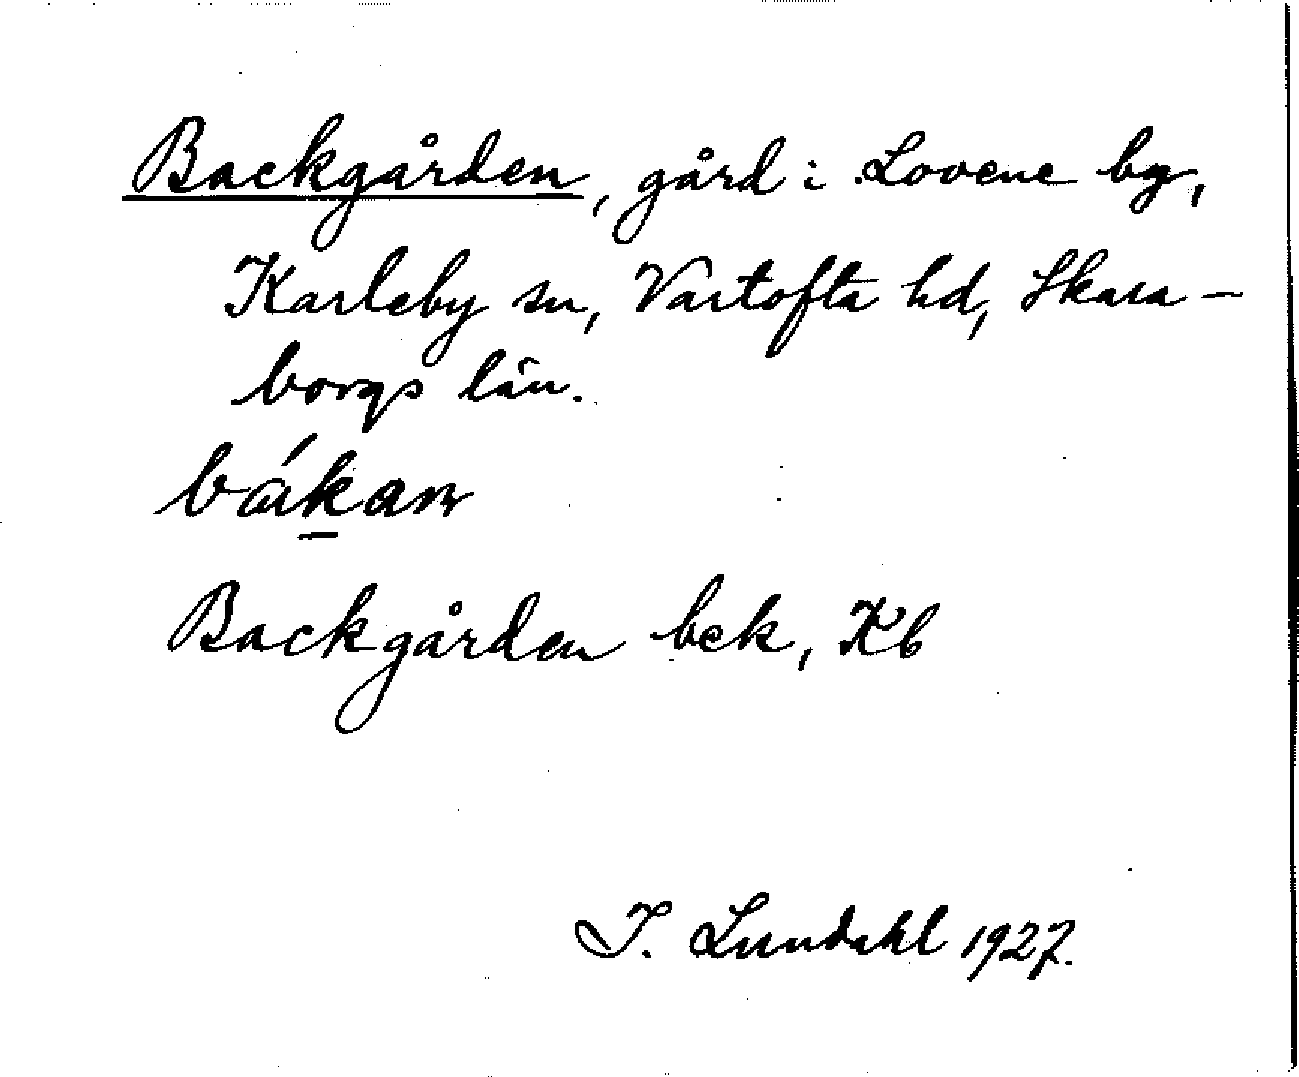 Backgården, gård i Lovene by,
Karleby sn, Vartofta hd, Skara-
borgs län.
bákan
Backgården bek, Kb
I. Lundahl 1927.